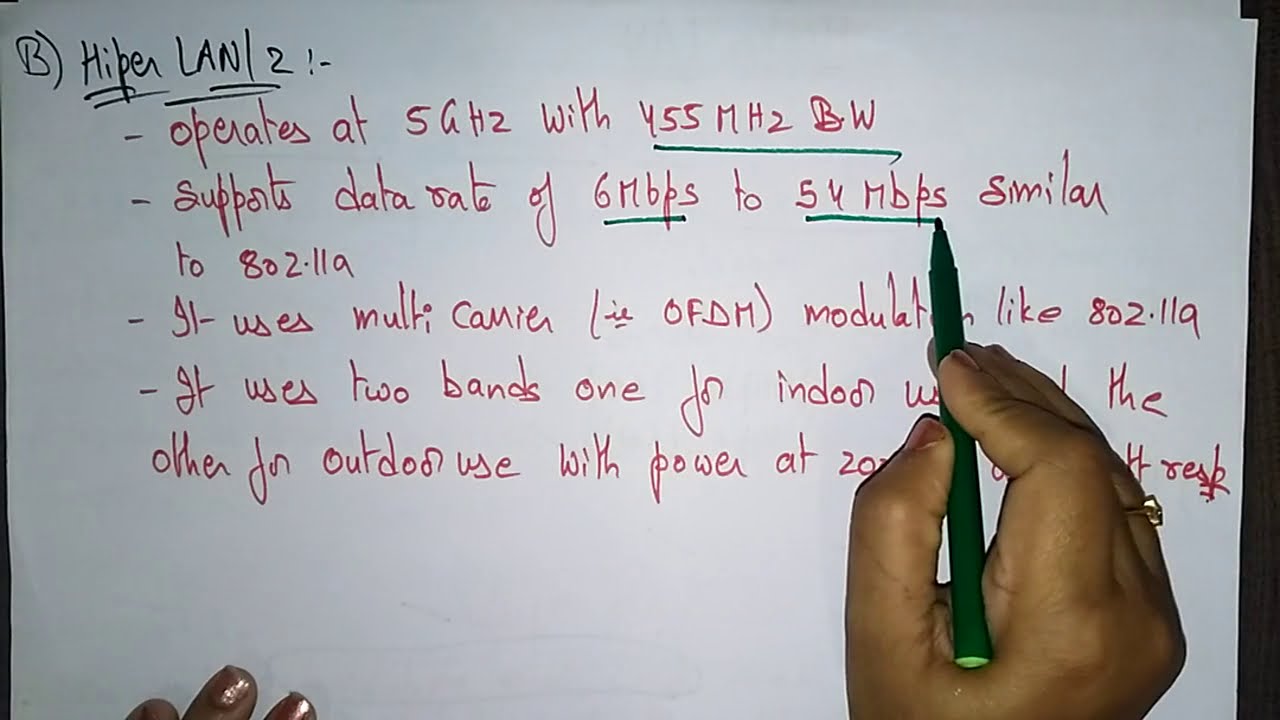 B) Hiper LAN/2 :-
- operates at 5GHz with 455MHz BW
- Supports data rate of 6Mbps to 54 Mbps similar
to 802.11a
- It uses multi carrier (ie OFDM) modulation like 802.11a
- It uses two bands one for indoor the
other for outdoor use with power at resp